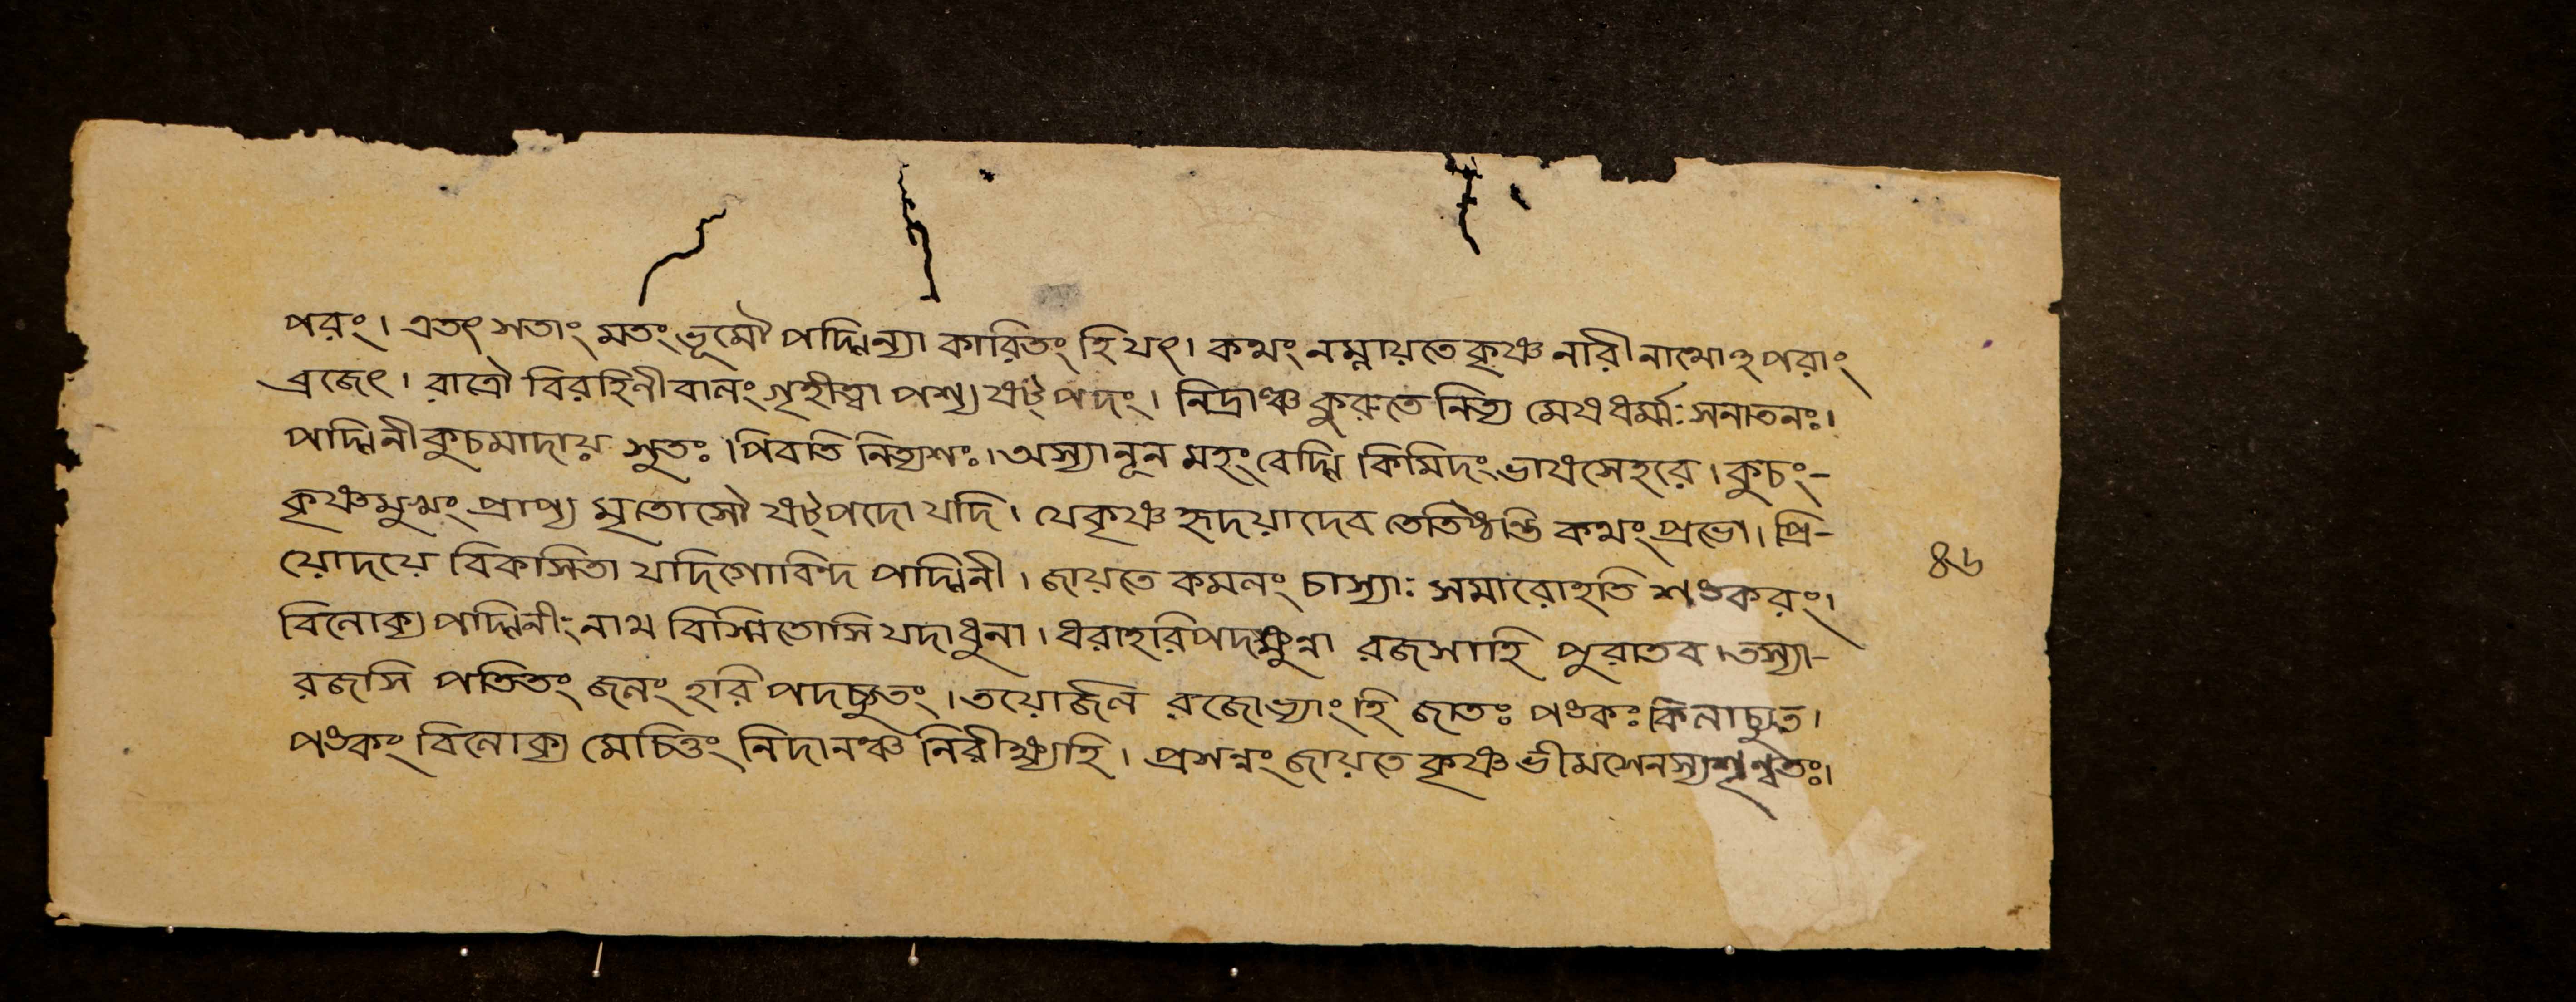 পরং। এতৎ সতাং মতং ভূমৌ পদ্মিন্যা কারিতং হি যৎ। কথং নম্লায়তে কৃষ্ণ নারী নাথোঽপরাং
ব্রজেৎ। রাত্রৌ বিরহিণী বালং গৃহীত্বা পশ্য ষট্পদং। নিদ্রাঞ্চ কুরুতে নিত্য মেষ ধর্ম্মঃ সনাতনঃ।
পদ্মিনী কুচমাদায় সুতঃ পিবতি নিত্যশঃ। অস্যা নূন মহং বেদ্মি কিমিদং ভাষসে হরে। কুচং-
কৃষ্ণমুখং প্রাপ্য মৃতোসৌ ষট্পদো যদি। যে কৃষ্ণ হৃদয়াদেব তেতিষ্ঠন্তি কথং প্রভো। প্রি-
য়োদয়ে বিকসিতা যদি গোবিন্দ পদ্মিনী। জায়তে কমলং চাস্যাঃ সমারোহতি শঙ্করং।
বিলোক্য পদ্মিনীং নাথ বিস্মিতোসি যদাধুনা। ধরাহরিপদক্ষুণ্না রজসাহি পুরাতব। তস্যা-
রজসি পতিতং জলং হরি পদচ্যুতং। তয়োর্জল রজোভ্যাং হি জাতঃ পঙ্কঃ কিলাচ্যুত।
পঙ্কং বিলোক্য মে চিত্তং নিদানঞ্চ নিরীক্ষ্য হি। প্রসন্নং জায়তে কৃষ্ণ ভীমসেনস্য শৃণ্বতঃ।
৪৬